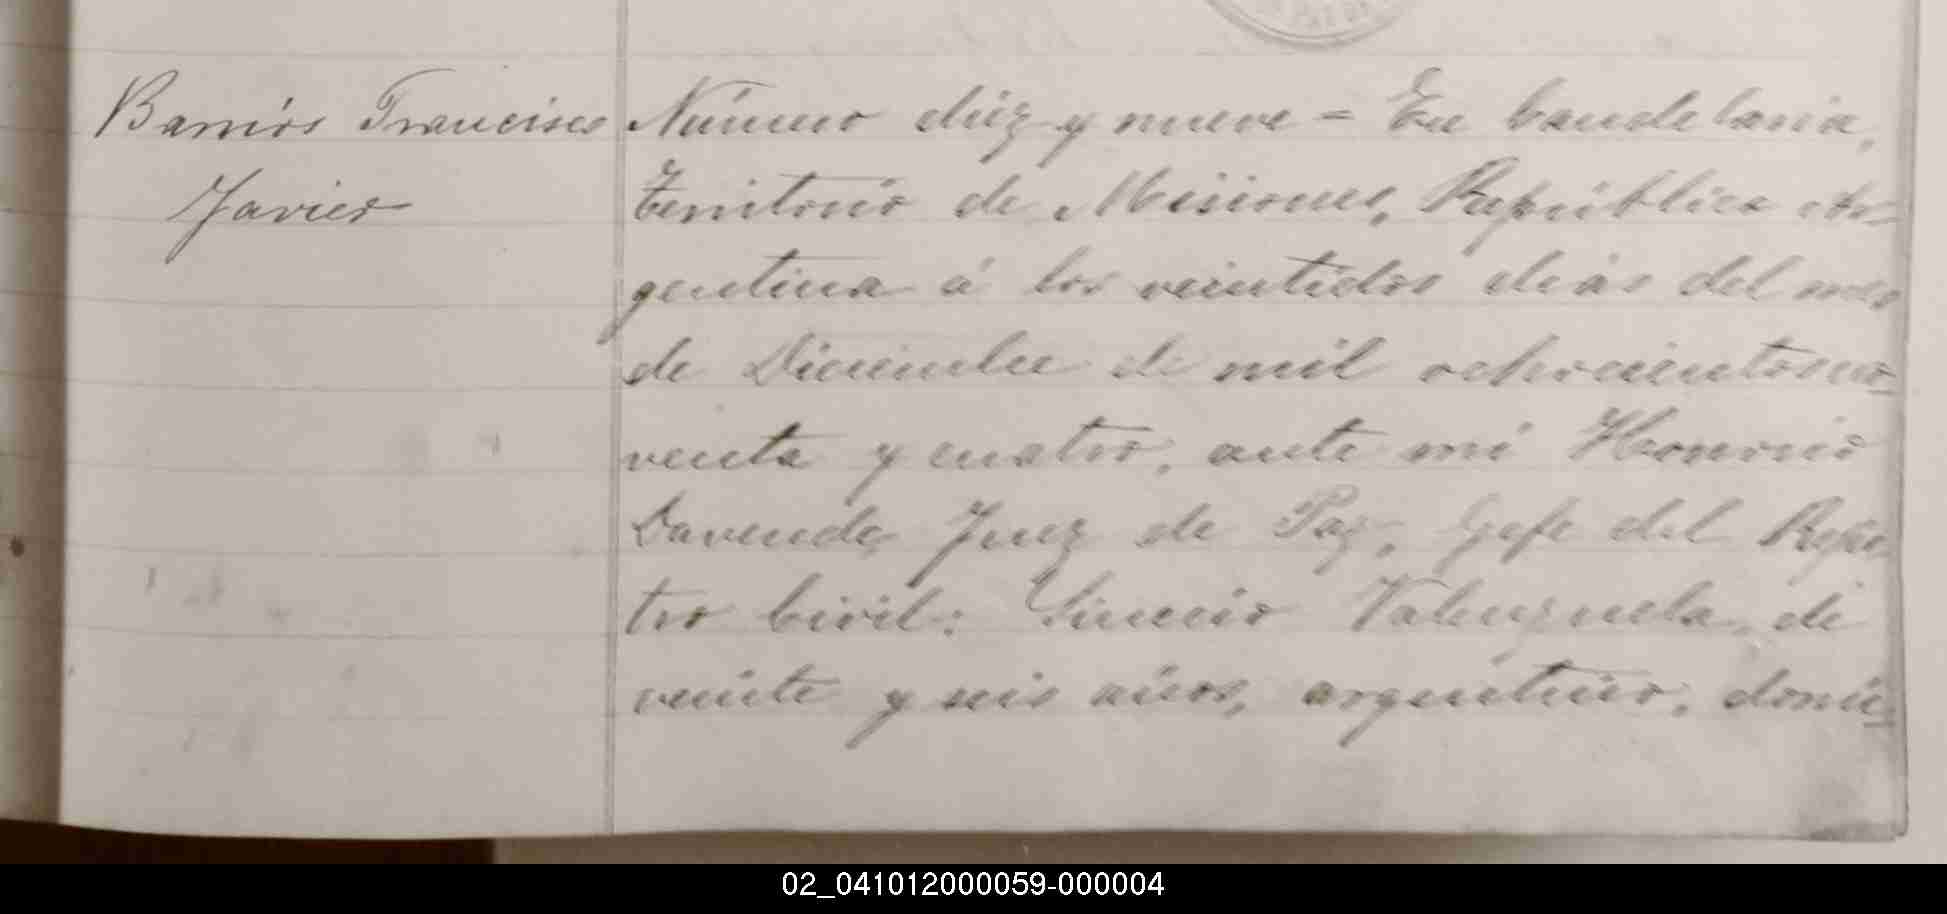 Barrios Francisco
Javier
Número diez y nueve = En Candelaria,
Territorio de Misiones, República Ar=
gentina á los veintidos dias del mes
de Diciembre de mil ochocientos no-
venta y cuatro, ante mi Honorio
Juez de Paz, Gefe del Regis
tro Civil: Valenzuela, de
veinte y seis años, argentino, domi-
02_041012000059-000004